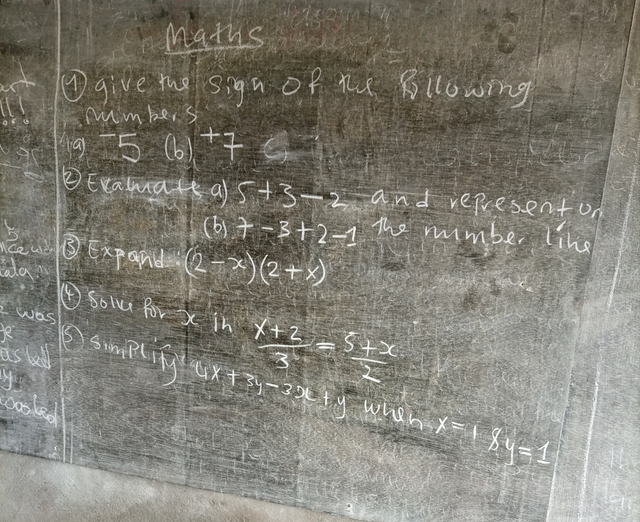 Maths
(1) give the sign of the following
numbers
(a) ⁻5 (b) ⁺7
(2) Evaluate a) 5+3-2 and represent on
(b) 7-3+2-1 the number line
(3) Expand: (2-x)(2+x)
(4) Solve for x in (x+2)/3 = (5+x)/2
(5) simplify 4x+3y-3x+y when x=1 & y=1
was
was